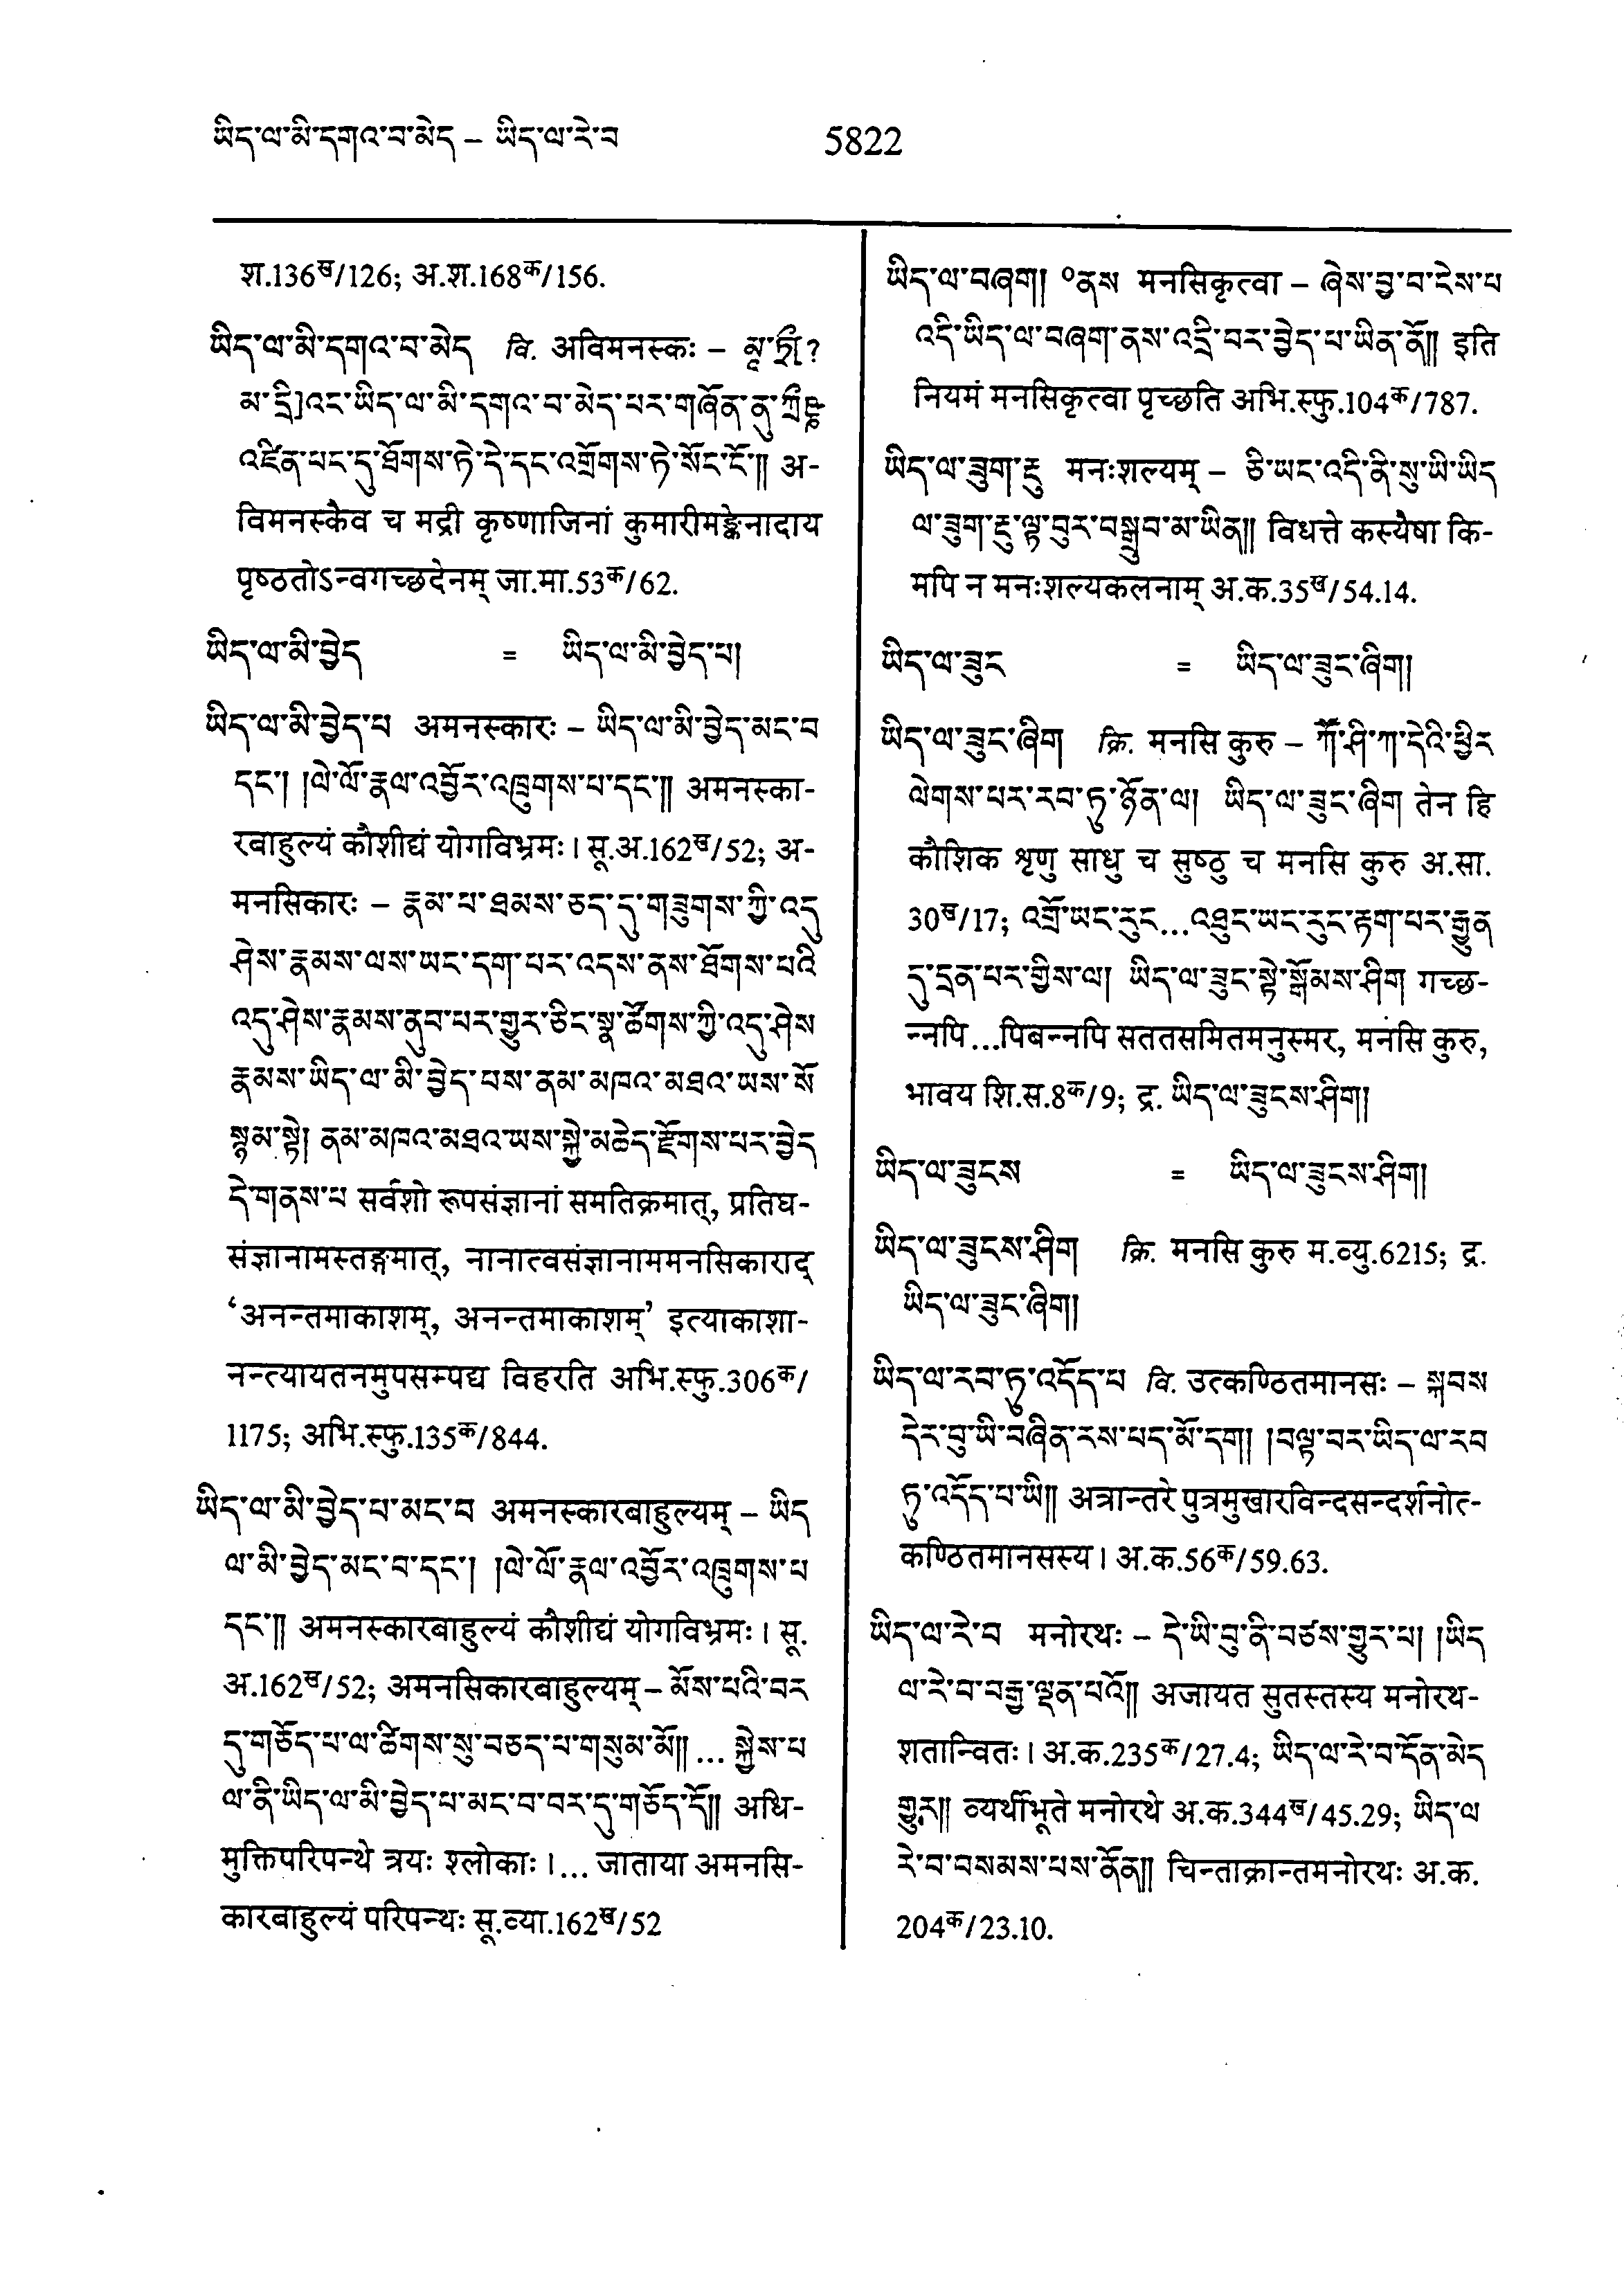 ཡིད་ལ་མི་དགའ་བ་མེད – ཡིད་ལ་རེ་བ 5822
श.136ख/126; अ.श.168क/156.
ཡིད་ལ་མི་དགའ་བ་མེད वि. अविमनस्कः –
འང་ཡིད་ལ་མི་དགའ་བ་མེད་པར་གཞོན་ནུ་
འཛིན་པང་དུ་ཐོགས་ཏེ་དེ་དང་འགྲོགས་ཏེ་སོང་ངོ་༎ अ-
विमनस्कैव च मद्री कृष्णाजिनां कुमारीमङ्केनादाय
पृष्ठतोऽन्वगच्छदेनम् जा.मा.53क/62.
ཡིད་ལ་མི་བྱེད = ཡིད་ལ་མི་བྱེད་པ།
ཡིད་ལ་མི་བྱེད་པ अमनस्कारः – ཡིད་ལ་མི་བྱེད་མང་བ
དང་། །ལེ་ལོ་རྣལ་འབྱོར་འཁྲུགས་པ་དང་༎ अमनस्का-
रबाहुल्यं कौशीद्यं योगविभ्रमः। सू.अ.162ख/52; अ-
मनसिकारः – རྣམ་པ་ཐམས་ཅད་དུ་གཟུགས་ཀྱི་འདུ
ཤེས་རྣམས་ལས་ཡང་དག་པར་འདས་ནས་ཐོགས་པའི
འདུ་ཤེས་རྣམས་ནུབ་པར་གྱུར་ཅིང་སྣ་ཚོགས་ཀྱི་འདུ་ཤེས
རྣམས་ཡིད་ལ་མི་བྱེད་པས་ནམ་མཁའ་མཐའ་ཡས་སོ
སྙམ་སྟེ། ནམ་མཁའ་མཐའ་ཡས་སྐྱེ་མཆེད་རྫོགས་པར་བྱེད
དེ་གནས་པ सर्वशो रूपसंज्ञानां समतिक्रमात्, प्रतिघ-
संज्ञानामस्तङ्गमात्, नानात्वसंज्ञानाममनसिकाराद्
‘अनन्तमाकाशम्, अनन्तमाकाशम्’ इत्याकाशा-
नन्त्यायतनमुपसम्पद्य विहरति अभि.स्फु.306क/
1175; अभि.स्फु.135क/844.
ཡིད་ལ་མི་བྱེད་པ་མང་བ अमनस्कारबाहुल्यम् – ཡིད
ལ་མི་བྱེད་མང་བ་དང་། །ལེ་ལོ་རྣལ་འབྱོར་འཁྲུགས་པ
དང་༎ अमनस्कारबाहुल्यं कौशीद्यं योगविभ्रमः। सू.
अ.162ख/52; अमनसिकारबाहुल्यम् – མོས་པའི་བར
དུ་གཅོད་པ་ལ་ཚིགས་སུ་བཅད་པ་གསུམ་མོ༎ ... སྐྱེས་པ
ལ་ནི་ཡིད་ལ་མི་བྱེད་པ་མང་བ་བར་དུ་གཅོད་དོ༎ अधि-
मुक्तिपरिपन्थे त्रयः श्लोकाः।... जाताया अमनसि-
कारबाहुल्यं परिपन्थः सू.व्या.162ख/52
ཡིད་ལ་བཞག། ॰ནས मनसिकृत्वा – ཞེས་བྱ་བ་ངེས་པ
འདི་ཡིད་ལ་བཞག་ནས་འདྲི་བར་བྱེད་པ་ཡིན་ནོ༎ इति
नियमं मनसिकृत्वा पृच्छति अभि.स्फु.104क/787.
ཡིད་ལ་ཟུག་རྔུ मनःशल्यम् – ཅི་ཡང་འདི་ནི་སུ་ཡི་ཡིད
ལ་ཟུག་རྔུ་ལྟ་བུར་བསྒྲུབ་མ་ཡིན༎ विधत्ते कस्यैषा कि-
मपि न मनःशल्यकलनाम् अ.क.35ख/54.14.
ཡིད་ལ་ཟུང = ཡིད་ལ་ཟུང་ཞིག།
ཡིད་ལ་ཟུང་ཞིག क्रि. मनसि कुरु – ཀཽ་ཤི་ཀ་དེའི་ཕྱིར
ལེགས་པར་རབ་ཏུ་ཉོན་ལ། ཡིད་ལ་ཟུང་ཞིག तेन हि
कौशिक श्रृणु साधु च सुष्ठु च मनसि कुरु अ.सा.
30ख/17; འགྲོ་ཡང་རུང...འཐུང་ཡང་རུང་རྟག་པར་རྒྱུན
དུ་དྲན་པར་གྱིས་ལ། ཡིད་ལ་ཟུང་སྟེ་སྒོམས་ཤིག गच्छ-
न्नपि...पिबन्नपि सततसमितमनुस्मर, मनसि कुरु,
भावय शि.स.8क/9; द्र. ཡིད་ལ་ཟུངས་ཤིག།
ཡིད་ལ་ཟུངས = ཡིད་ལ་ཟུངས་ཤིག།
ཡིད་ལ་ཟུངས་ཤིག क्रि. मनसि कुरु म.व्यु.6215; द्र.
ཡིད་ལ་ཟུང་ཞིག།
ཡིད་ལ་རབ་ཏུ་འདོད་པ वि. उत्कण्ठितमानसः – སྐབས
དེར་བུ་ཡི་བཞིན་རས་པད་མོ་དག། །བལྟ་བར་ཡིད་ལ་རབ
ཏུ་འདོད་པ་ཡི༎ अत्रान्तरे पुत्रमुखारविन्दसन्दर्शनोत्-
कण्ठितमानसस्य। अ.क.56क/59.63.
ཡིད་ལ་རེ་བ मनोरथः – དེ་ཡི་བུ་ནི་བཙས་གྱུར་པ། །ཡིད
ལ་རེ་བ་བརྒྱ་ལྡན་པའོ༎ अजायत सुतस्तस्य मनोरथ-
शतान्वितः। अ.क.235क/27.4; ཡིད་ལ་རེ་བ་དོན་མེད
གྱུར༎ व्यर्थीभूते मनोरथे अ.क.344ख/45.29; ཡིད་ལ
རེ་བ་བསམས་པས་ནོན༎ चिन्ताक्रान्तमनोरथः अ.क.
204क/23.10.